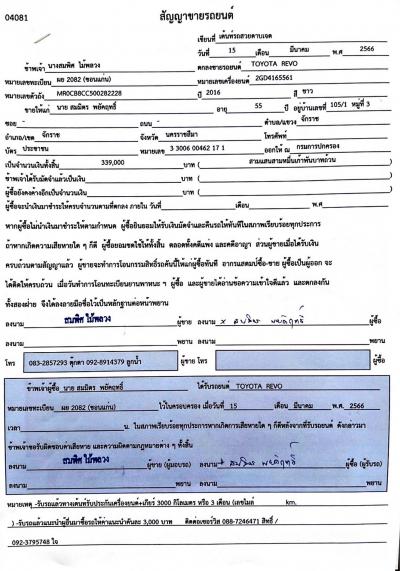 04081
สัญญาขายรถยนต์
เขียนที่ เต้นท์รถสวยดาบเจต
วันที่ 15 เดือน มีนาคม พ.ศ 2566
ข้าพเจ้า นางสมพิศ ไม้พลวง ตกลงขายรถยนต์ TOYOTA REVO
หมายเลขทะเบียน ผย 2082 (ขอนแก่น) หมายเลขเครื่องยนต์ 2GD4165561
หมายเลขตัวถัง MR0CB8CC500282228 ปี 2016 สี ขาว
ขายให้แก่ นาย สมมิตร พยัคฤทธิ์ อายุ 55 ปี อยู่บ้านเลขที่ 105/1 หมู่ที่ 3
ซอย - ถนน - ตำบล/แขวง จักราช
อำเภอ/เขต จักราช จังหวัด นครราชสีมา โทรศัพท์
บัตร ประชาชน หมายเลข 3 3006 00462 17 1 ออกให้ ณ กรมการปกครอง
เป็นจำนวนเงินทั้งสิ้น 339,000 บาท ( สามแสนสามหมื่นเก้าพันบาทถ้วน )
ข้าพเจ้าได้รับมัดจำแล้วเป็นเงิน บาท ( )
ผู้ซื้อยังคงค้างอีกเป็นจำนวนเงิน บาท ( )
ผู้ซื้อจะนำเงินมาชำระให้ครบจำนวนตามที่ตกลง ภายใน วันที่ เดือน พ.ศ
หากผู้ซื้อไม่นำเงินมาชำระให้ตามกำหนด ผู้ซื้อยินยอมให้ริบเงินมัดจำและคืนรถให้ทันทีในสภาพเรียบร้อยทุกประการ
ถ้าหากเกิดความเสียหายใด ๆ ก็ดี ผู้ซื้อยอมชดใช้ให้ทั้งสิ้น ตลอดทั้งคดีแพ่ง และคดีอาญา ส่วนผู้ขายเมื่อได้รับเงิน
ครบถ้วนตามสัญญาแล้ว ผู้ขายจะทำการโอนกรรมสิทธิ์รถคันนี้ให้แก่ผู้ซื้อทันที อากรแสตมป์ซื้อ-ขาย ผู้ซื้อเป็นผู้ออก จะ
ได้คิดให้ครบถ้วน เมื่อวันทำการโอนทะเบียนยานพาหนะ ฯ ผู้ซื้อ และผู้ขายได้อ่านข้อความเข้าใจดีแล้ว และตกลงกัน
ทั้งสองฝ่าย จึงได้ลงลายมือชื่อไว้เป็นหลักฐานต่อหน้าพยาน
ลงนาม สมพิศ ไม้พลวง ผู้ขาย ลงนาม x สมมิตร พยัคฤทธิ์ ผู้ซื้อ
ลงนาม พยาน ลงนาม พยาน
โทร 083-2857293 ตุ๊กตา 092-8914379 ลูกน้ำ ผู้ขาย โทร ผู้ซื้อ
ข้าพเจ้าผู้ซื้อ นาย สมมิตร พยัคฤทธิ์ ได้รับรถยนต์ TOYOTA REVO
หมายเลขทะเบียน ผย 2082 (ขอนแก่น) ไว้ในครอบครอง เมื่อวันที่ 15 เดือน มีนาคม พ.ศ 2566
เวลา น. ในสภาพเรียบร้อยทุกประการหากเกิดการเสียหายใด ๆ ก็ดีหลังจากที่รับรถยนต์ ดังกล่าวมา
ข้าพเจ้าขอรับผิดชอบค่าเสียหาย และความผิดตามกฎหมายต่าง ๆ ทั้งสิ้น
ลงนาม สมพิศ ไม้พลวง ผู้ขาย (ผู้มอบรถ) ลงนาม x สมมิตร พยัคฤทธิ์ ผู้ซื้อ (ผู้รับรถ)
ลงนาม พยาน ลงนาม พยาน
หมายเหตุ -รับรถแล้วทางเต้นท์รับประกันเครื่องยนต์+เกียร์ 3000 กิโลเมตร หรือ 3 เดือน (เลขไมล์ km.
) -รับรถแล้วแนะนำผู้อื่นมาซื้อรถให้ค่าแนะนำคันละ 3,000 บาท ติดต่อเซอร์วิส 088-7246471 สิทธิ์ /
092-3795748 ใจ